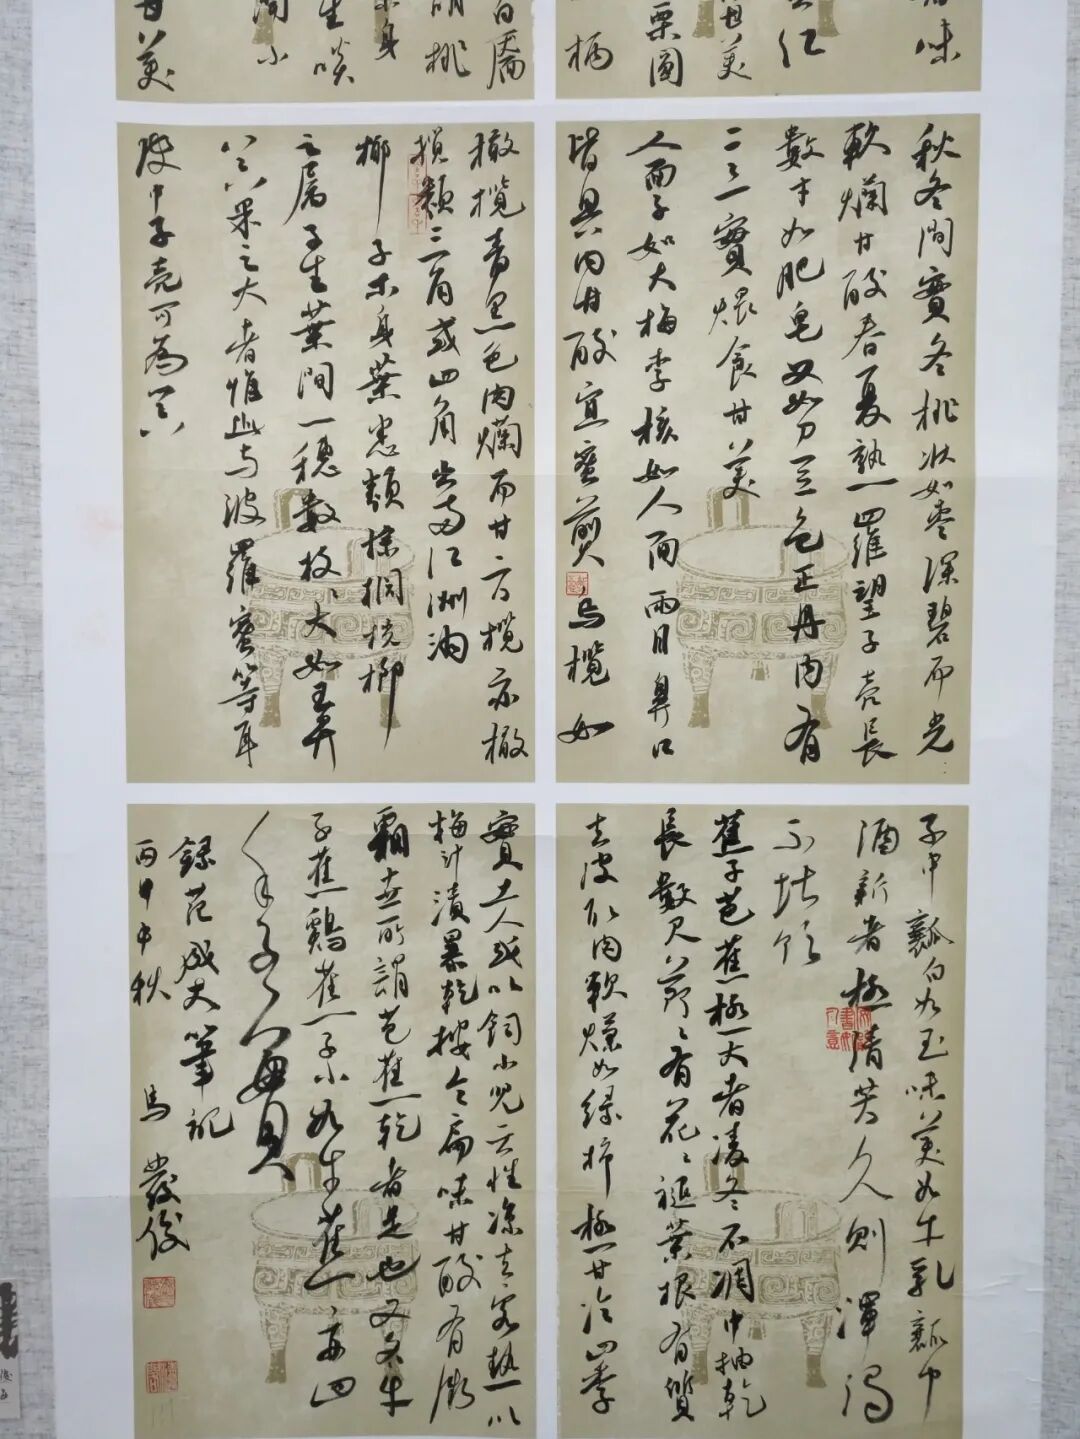 味
仁
美
栗圆
柄
桃
身
生啖
间小
甘美
秋冬間實冬桃狀如枣深碧而光
軟爛甘酸春夏熟羅望子壳長
數寸如肥皂又如刀豆色正丹内有
二三實煨食甘美
人面子如大梅李核如人面两目鼻口
皆具肉甘酸宜蜜煎烏欖如
橄欖青黑色肉爛而甘方欖亦橄
欖類三角或四角出兩江洲洞
椰子木身葉悉類棕櫚桄榔
之属子生葉間一穗數枚々大如五升
器果之大者惟此与波羅蜜等耳
皮中子壳可為器
子中瓤白如玉味美如牛乳瓤中
酒新者極清芳久則渾濁
不堪飲
蕉子芭蕉極大者凌冬不凋中抽乾
長數尺節々有花々褪葉根有實
去皮取肉軟爛如绿柿極甘冷四季
實土人或以飼小兒云性凉去客熱以
梅汁漬暴乾按令扁味甘酸有微
霜世所謂芭蕉乾者是也又名牛
子蕉鷄蕉子小如牛蕉亦四
季實
錄范成大筆記
丙申中秋 馬發俊